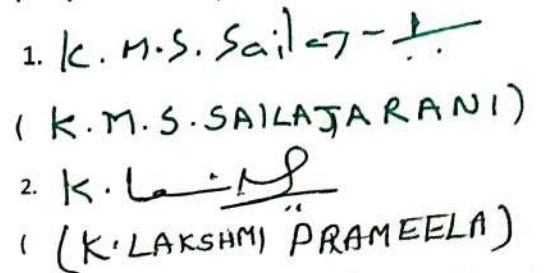 1. K. M. S. Saila
( K. M. S. SAILAJA RANI )
2. K. L
( (K. LAKSHMI PRAMEELA )